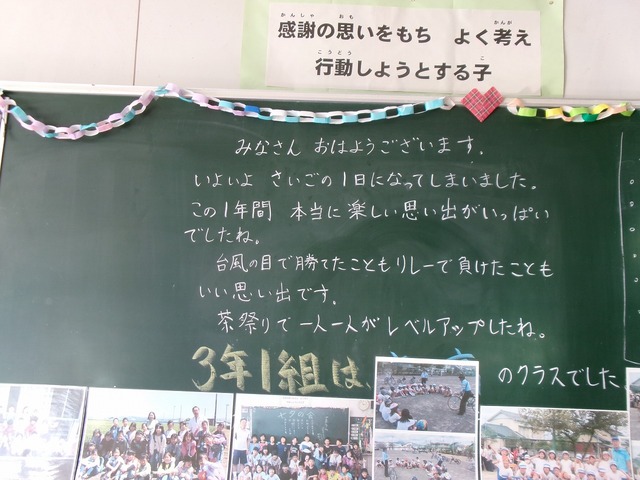 感謝の思いをもち よく考え
行動しようとする子
みなさん おはようございます.
いよいよ さいごの1日になってしまいました。
この1年間 本当に楽しい思い出がいっぱい
でしたね。
台風の目で勝てたこともリレーで負けたことも
いい思い出です.
茶祭りで一人一人がレベルアップしたね。
3年1組は、
のクラスでした